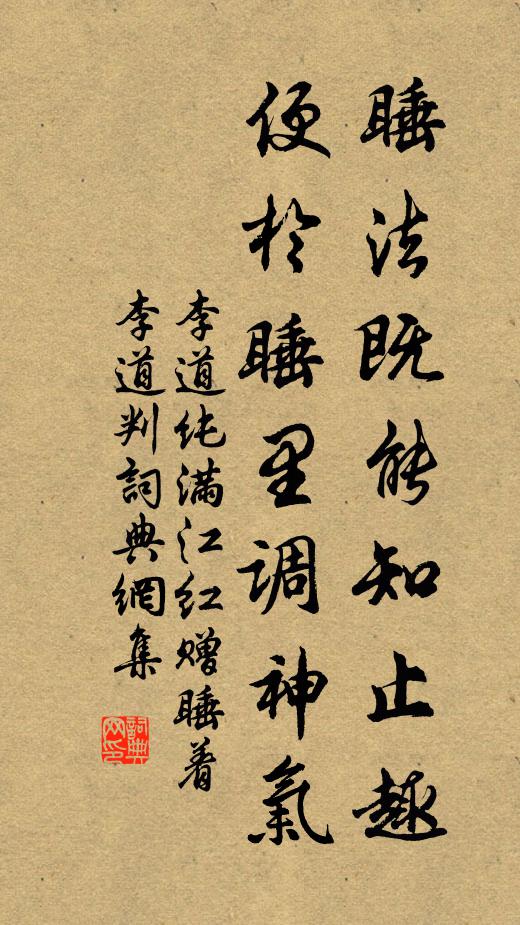 睡法既能知止趣
便於睡里调神氣
李道纯满江红赠睡着
李道判詞典網集
詞典網印